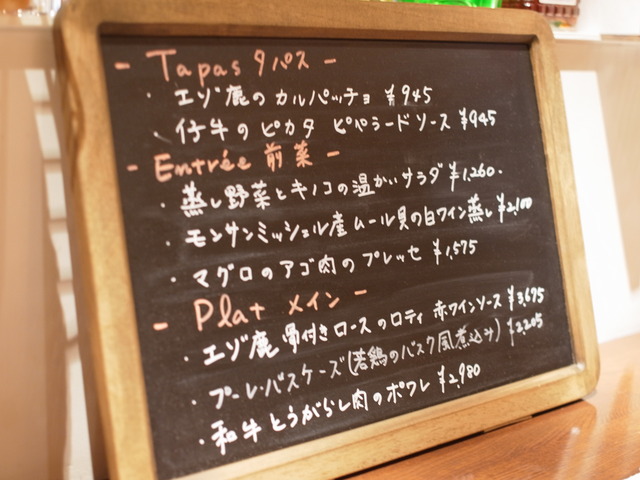 - Tapas タパス -
・エゾ鹿のカルパッチョ ¥945
・仔牛のピカタ ピペラードソース ¥945
- Entrée 前菜 -
・蒸し野菜とキノコの温かいサラダ ¥1,260.
・モンサンミッシェル産ムール貝の白ワイン蒸し ¥2,100
・マグロのアゴ肉のプレッセ ¥1,575
- Plat メイン -
・エゾ鹿 骨付きロースのロティ 赤ワインソース ¥3,675
・プーレ・バスケーズ(若鶏のバスク風煮込み) ¥2,205
・和牛とうがらし肉のポワレ ¥2,980